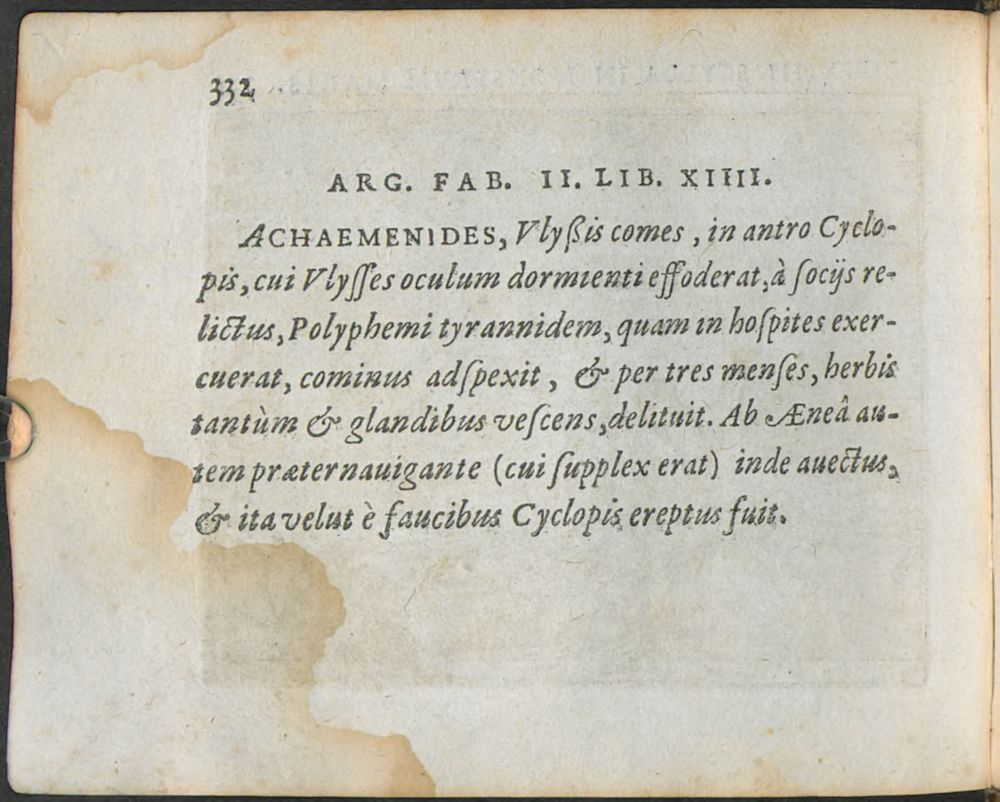 332
ARG. FAB. II. LIB. XIIII.
ACHAEMENIDES, Vlyßis comes, in antro Cyclo-
pis, cui Vlyſſes oculum dormienti effoderat, à ſocijs re-
lictus, Polyphemi tyrannidem, quam in hoſpites exer-
cuerat, cominus adſpexit, & per tres menſes, herbis
tantùm & glandibus veſcens, delituit. Ab Æneâ au-
tem præternauigante (cui ſupplex erat) inde auectus,
& ita velut è faucibus Cyclopis ereptus fuit.